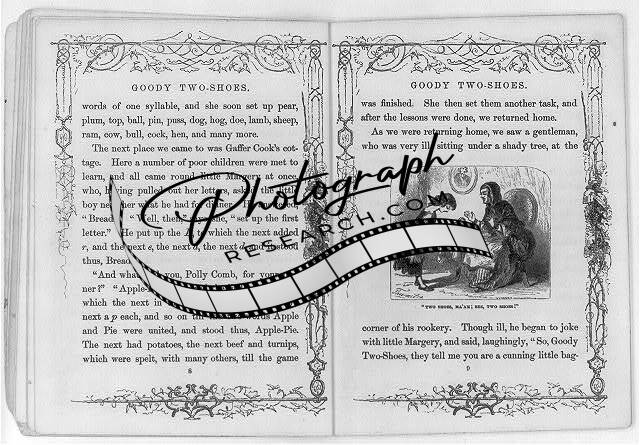 GOODY TWO-SHOES.
words of one syllable, and she soon set up pear,
plum, top, ball, pin, puss, dog, hog, doe, lamb, sheep,
ram, cow, bull, cock, hen, and many more.
The next place we came to was Gaffer Cook's cot-
tage. Here a number of poor children were met to
learn, and all came round little Margery at once,
who, having pulled out her letters, the little
boy her what he had for
"Bread "set up the first
letter." He put up the to which the next added
r, and the next e, the next the next stood
thus, Bread
"And what you, Polly Comb, for
ner?"
which the next in
next a p each, and so on words Apple
and Pie were united, and stood thus, Apple-Pie.
The next had potatoes, the next beef and turnips,
which were spelt, with many others, till the game
8
GOODY TWO-SHOES.
was finished. She then set them another task, and
after the lessons were done, we returned home.
As we were returning home, we saw a gentleman,
who was very ill, sitting under a shady tree, at the
"TWO SHOES, MA'AM; SEE, TWO SHOES!"
corner of his rookery. Though ill, he began to joke
with little Margery, and said, laughingly, "So, Goody
Two-Shoes, they tell me you are a cunning little bag-
9
Photograph
RESEARCH.COM